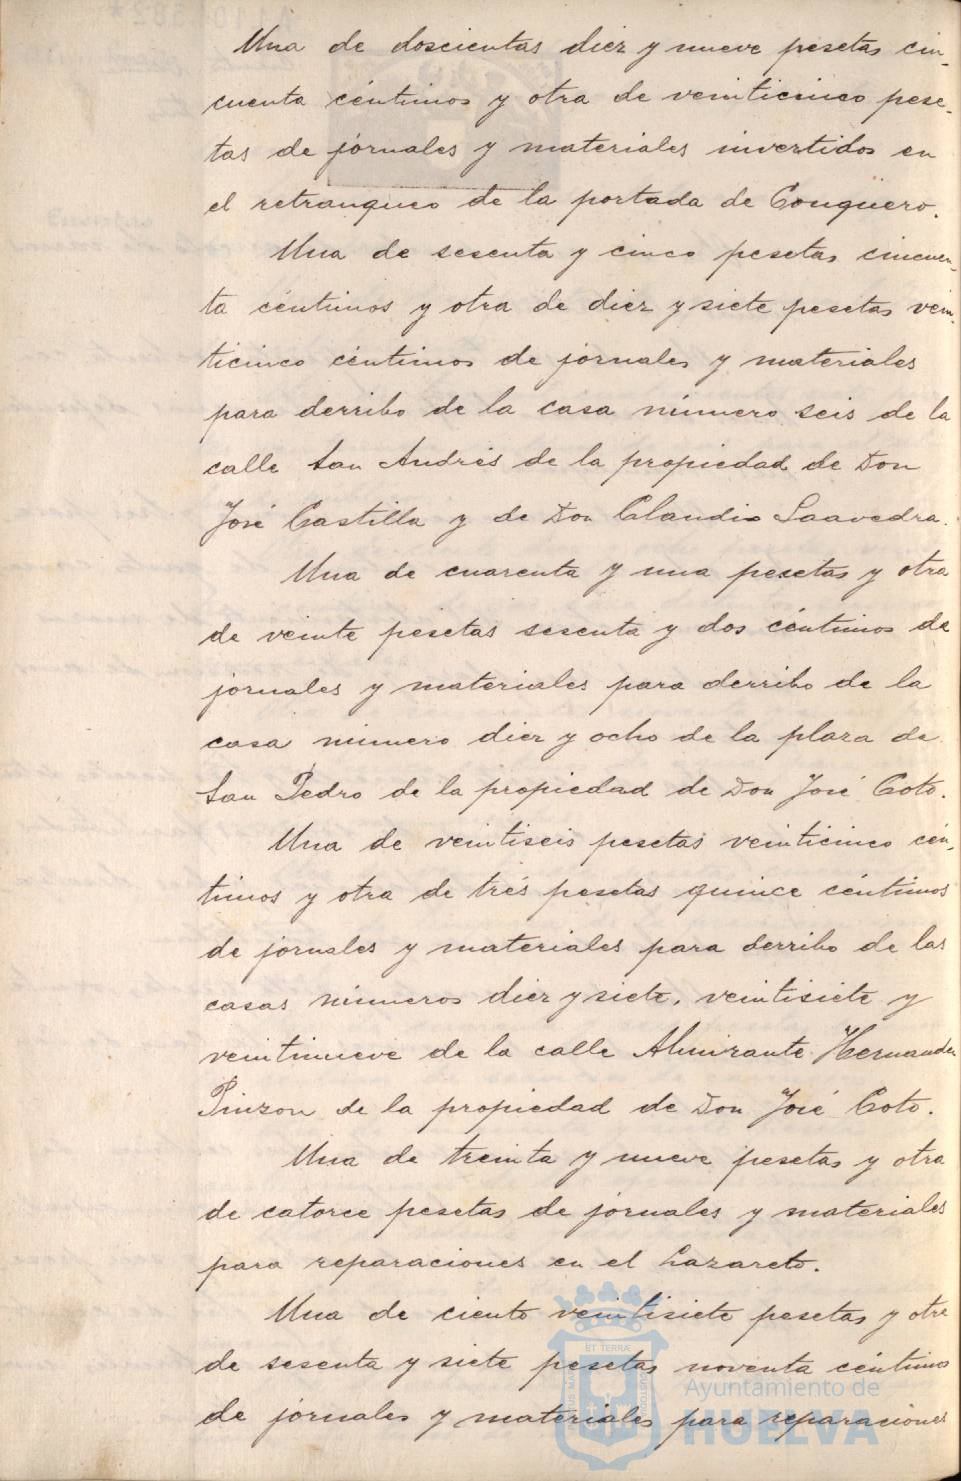 Una de doscientas diez y nueve pesetas cin-
cuenta céntimos y otra de veinticinco pese-
tas de jornales y materiales invertidos en
el retranqueo de la portada de Conquero.
Una de sesenta y cinco pesetas cincuen-
ta céntimos y otra de diez y siete pesetas vein-
ticinco céntimos de jornales y materiales
para derribo de la casa número seis de la
calle San Andrés de la propiedad de Don
José Castilla y de Don Claudio Saavedra.
Una de cuarenta y una pesetas y otra
de veinte pesetas sesenta y dos céntimos de
jornales y materiales para derribo de la
casa número diez y ocho de la plaza de
San Pedro de la propiedad de Don José Coto.
Una de veintiseis pesetas veinticinco cén-
timos y otra de trés pesetas quince céntimos
de jornales y materiales para derribo de las
casas números diez y siete, veintisiete y
veintinueve de la calle Almirante Hernandez
Pinzon de la propiedad de Don José Coto.
Una de treinta y nueve pesetas y otra
de catorce pesetas de jornales y materiales
para reparaciones en el Lazareto.
Una de ciento veintisiete pesetas y otra
de sesenta y siete pesetas noventa céntimos
de jornales y materiales para reparaciones
ET TERRÆ
Ayuntamiento de
HUELVA